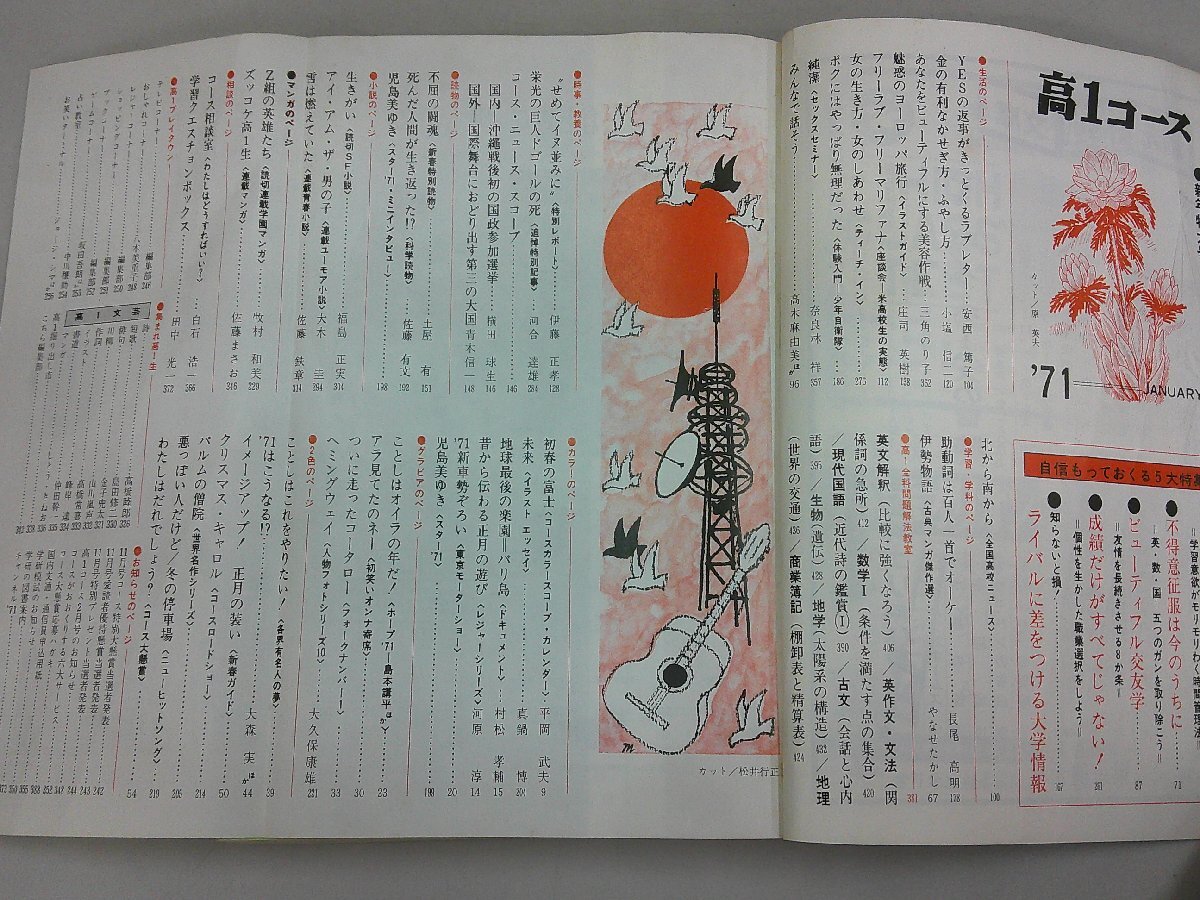 高1コース
カット/原 英夫
'71
JANUARY
自信もっておくる5大特集
●不得意征服は今のうちに
=英・数・国 五つのガンを取り除こう= 73
●ビューティフル交友学
=友情を長続きさせる8か条= 87
●成績だけがすべてじゃない!
=個性を生かした職業選択をしよう=
●知らないと損!
ライバルに差をつける大学情報
●生活のページ
YESの返事がきっとくるラブレター……安西 篤子 104
金の有利なかせぎ方・ふやし方……小塩 信二 120
あなたをビューティフルにする美容作戦…三角のり子 352
魅惑のヨーロッパ旅行〈イラストガイド〉…庄司 英樹 128
フリーラブ・フリーマリファナ〈座談会―米高校生の実態〉 112
女の生き方・女のしあわせ〈ティーチ・イン〉 275
ボクにはやっぱり無理だった〈体験入門 少年自衛隊〉 186
純潔〈セックスセミナー〉……奈良林 祥 357
みんなで話そう……高木麻由美ほか 96
北から南から〈全国高校ニュース〉 100
●学習・学科のページ
助動詞は百人一首でオーケー……長尾 高明 178
伊勢物語〈古典マンガ傑作選〉……やなせたかし 67
●高1全科問題解法教室 381
英文解釈(比較に強くなろう)406/英作文・文法(関
係詞の急所)412/数学Ⅰ(条件を満たす点の集合)420
/現代国語(近代詩の鑑賞Ⅰ)390/古文(会話と心内
語)395/生物(遺伝)428/地学(太陽系の構造)432/地理
(世界の交通)436/商業簿記(棚卸表と精算表)424
カット/松井行正
●時事・教養のページ
"せめてイヌ並みに"〈特別レポート〉……伊藤 正孝 128
栄光の巨人ドゴールの死〈追悼特別記事〉……河合 達雄 284
コース・ニュース・スコープ…… 146
国内―沖縄戦後初の国政参加選挙……横田 球生 146
国外―国際舞台におどり出す第三の大国 青木信二 148
●読物のページ
不屈の闘魂〈新春特別読物〉……土屋 有 151
死んだ人間が生き返った!?〈科学読物〉……佐藤 有文 192
児島美ゆき〈スター'71・ミニインタビュー〉…… 198
●小説のページ
生きがい〈読切SF小説〉……福島 正実 304
アイ・アム・ザ・男の子〈連載ユーモア小説〉…大木 圭 294
雪は燃えていた〈連載青春小説〉……佐藤 鉄章 314
●マンガのページ
Z組の英雄たち〈読切連載学園マンガ〉……牧村 和美 229
ズッコケ高1生〈連載マンガ〉……佐藤まさお 216
●相談のページ
コース相談室〈わたしはどうすればいい?〉…白石 浩一 366
学習クエスチョンボックス……田中 光一 372
●高1プレイタウン
テレビコーナー……編集部 246
おしゃれコーナー
ショッピングコーナー……編集部 250
ブックコーナー……編集部 251
ゲームコーナー……編集部 252
占い教室
お笑いターミナル……中川運動 254
●集まれ高1生
高1文芸
詩
短歌
俳句
川柳
作詞
コント
書道
マンガ
高1掘り出し市
こちら編集部
●カラーのページ
初春の富士〈コースカラースコープ・カレンダー〉…平岡 武夫 9
未来〈イラスト・エッセイ〉……真鍋 博 201
地球最後の楽園 バリ島〈ドキュメント〉……村松 孝輔 15
昔から伝わる正月の遊び〈レジャーシリーズ〉…河原 淳 14
'71新車勢ぞろい〈東京モーターショー〉…… 20
児島美ゆき〈スター'71〉…… 199
●グラビアのページ
ことしはオイラの年だ!〈ホープ'71―島本講平ほか〉…… 23
アラ見てたのネー〈初笑いオンナ寄席〉…… 30
ついに走ったコータロー〈フォークナンバー〉…… 33
ヘミングウェイ〈人物フォトシリーズ10〉……大久保康雄 221
●2色のページ
ことしはこれをやりたい!〈各界有名人の事〉…… 39
'71はこうなる!?……大森 実ほか 44
イメージアップ! 正月の装い〈新春ガイド〉…… 50
クリスマス・キャロル〈コースロードショー〉…… 214
パルムの僧院〈世界名作シリーズ〉…… 205
悪っぽい人だけど/冬の停車場〈ニュー・ヒットソング〉 219
わたしはだれでしょう?〈コース大懸賞〉…… 54
●お知らせのページ
11月号コース特別大懸賞当選者発表 242
11月号愛読者優待懸賞当選者発表
11月号特別プレゼント当選者発表
高1コース2月号のお知らせ
コースがおくりする六大サービス
コース大懸賞応募ハガキ
国内文通・通信員申込用紙
学研模試のお知らせ
学研の図書案内
チャンネル'71